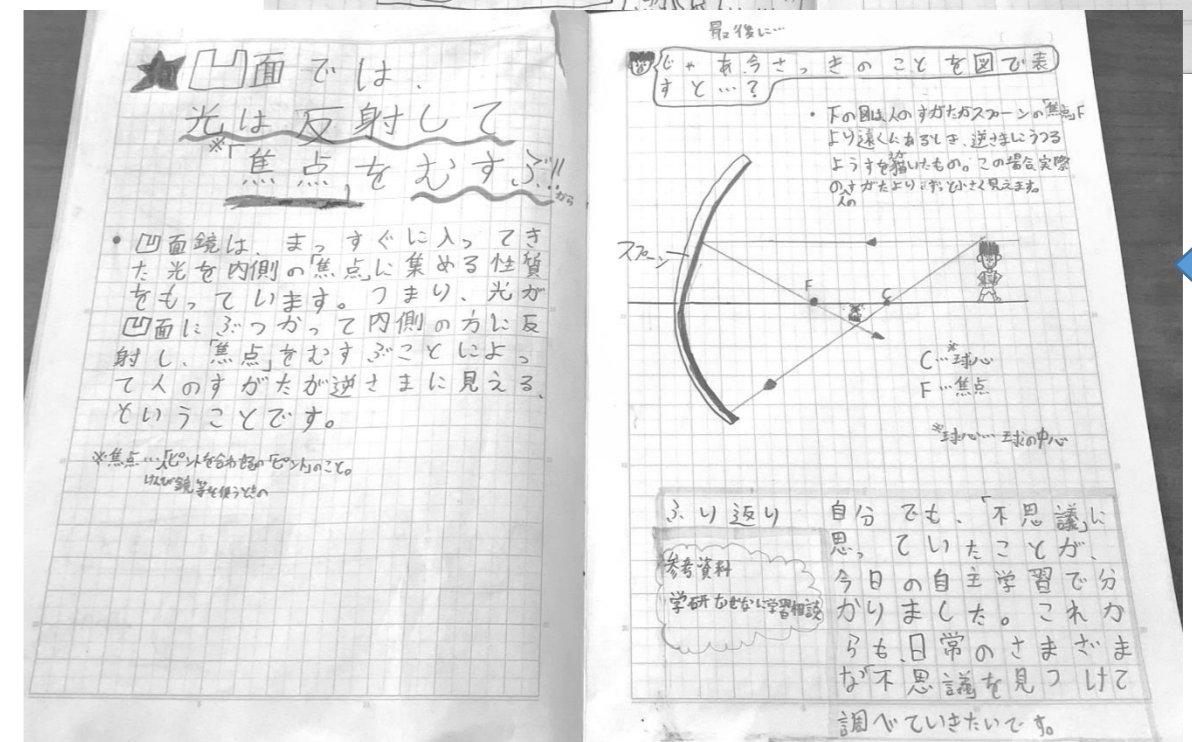 凹面では、
光は反射して
※「焦点」をむすぶ!!
から
・凹面鏡は、まっすぐに入ってき
た光を内側の「焦点」に集める性質
をもっています。つまり、光が
凹面にぶつかって内側の方に反
射し、「焦点」をむすぶことによっ
て人のすがたが逆さまに見える、
ということです。
※焦点…「ピントを合わせる」の「ピント」のこと。
けんび鏡等を使うときの
最後に…
じゃあ今さっきのことを図で表
すと…?
・下の図は人のすがたがスプーンの「焦点」F
より遠くにあるとき、逆さまにうつる
ようすを描いたもの。この場合実際
のすがたよりずっと小さく見えます。
人の
スプーン
F
C
C…※球心
F…焦点
※球心…球の中心
ふり返り
参考資料
学研なぜなに学習相談
自分でも、「不思議」に
思っていたことが、
今日の自主学習で分
かりました。これか
らも、日常のさまざま
な「不思議を見つけて
調べていきたいです。